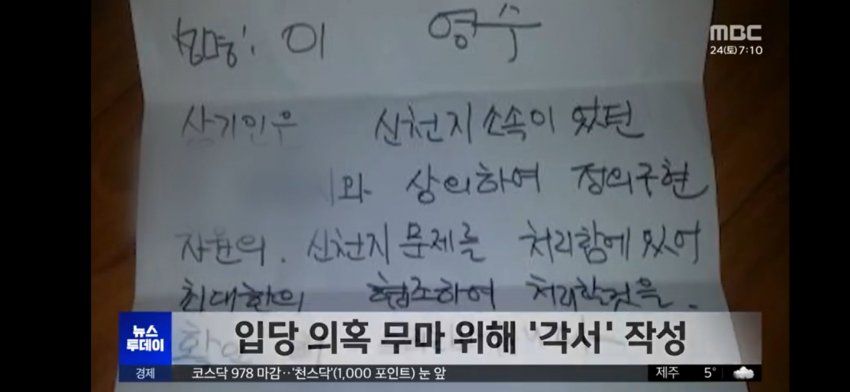 MBC
24(토)7:10
성명: 이 영수
상기인은 신천지 소속이 었던
와 상의하여 정의구현
차원의. 신천지 문제를 처리함에 있어
최대한의 협조하여 처리할것을.
뉴스
투데이
입당 의혹 무마 위해 '각서' 작성
경제 코스닥 978 마감··'천스닥'(1,000 포인트) 눈 앞 제주 5°